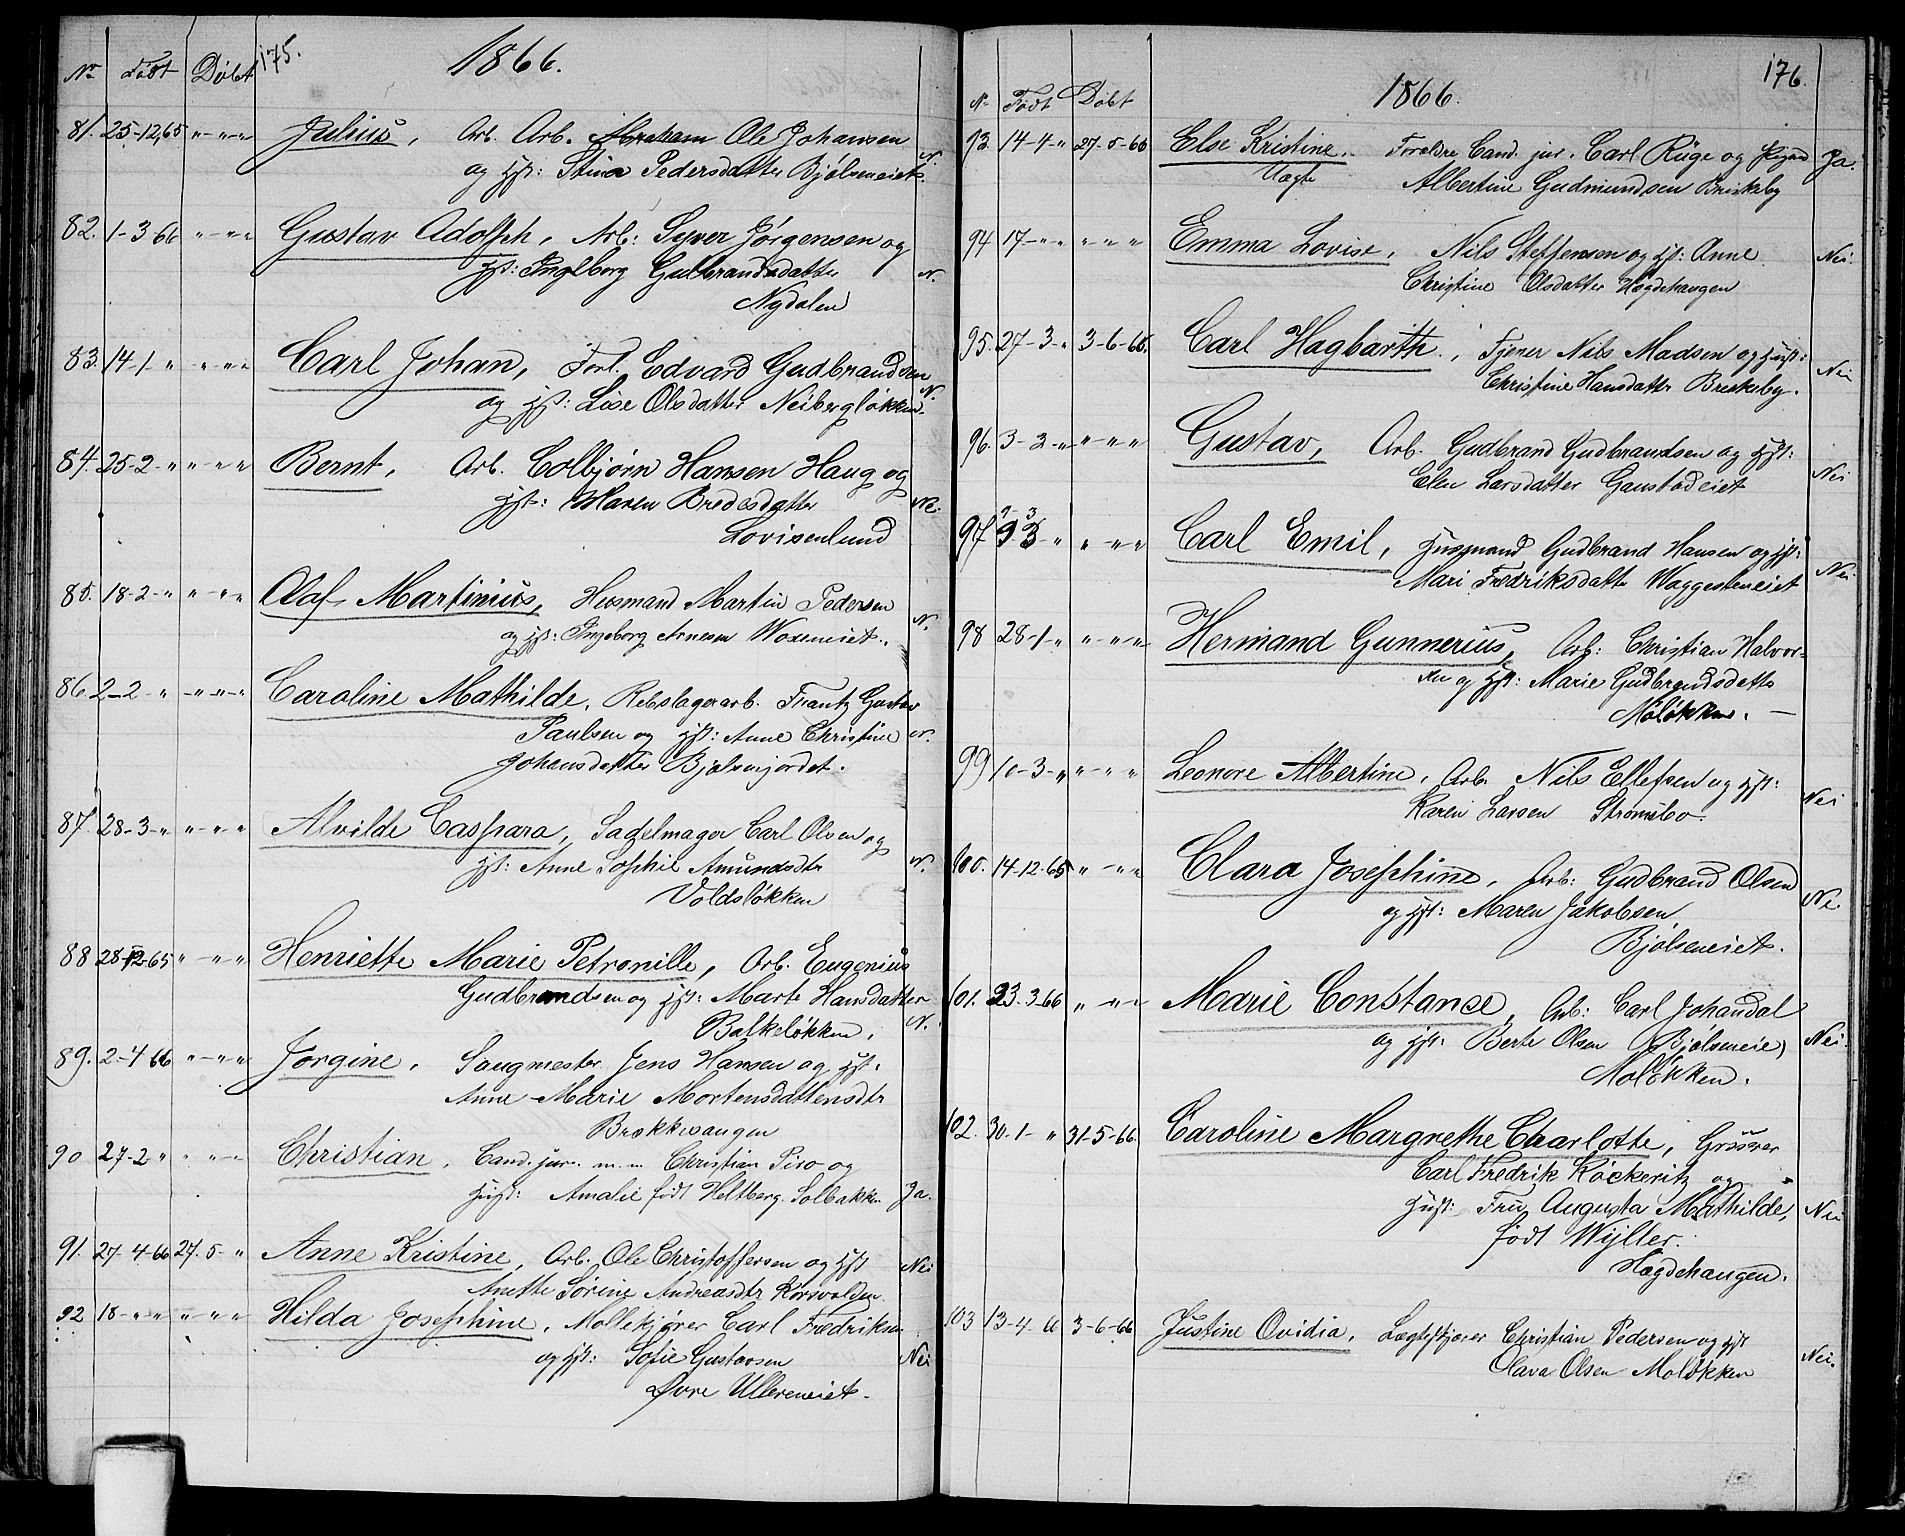 Nr Født Døbt 175. 1866.
81. 25-12,65 „-„-„ Julius, Arb. Arb. Abraham Ole Johansen N.
og Hst: Stina Pedersdatter Bjølseneiet.
82. 1-3-66 „-„-„ Gustav Adolph, Arb: Syver Jørgensen og
Hst: Ingeborg Gulbrandsdatter N.
Nydalen
83. 14-1 „ „-„-„ Carl Johan, Forl. Edvard Gudbrandsen
og Hst: Lise Olsdatter Neibergløkken. N.
84. 25-2-„ „-„-„ Bernt, Arb. Colbjørn Hansen Haug og
Hst: Maren Bredesdatter Nei.
Lovisenlund
85. 18-2-„ „-„-„ Olaf Martinius, Husmand Martin Pedersen
og Hst: Ingeborg Arnesen Woxeneiet. N.
86. 2-2 „ „-„-„ Caroline Mathilde, Rebslagerarb. Frantz Gustav
Paulsen og Hst: Anne Christine N.
Johansdatter Bjølsenjordet.
87. 28-3-„ „-„-„ Alvilde Caspara, Sadelmager Carl Olsen og
Hst: Anne Sophie Amundsdtr N.
Voldsløkken
88 28-12-65 „-„-„ Henriette Marie Petronille, Arb. Eugenius
Gudbrandsen og Hst: Marte Hansdatter
Balkeløkken. N.
89. 2-4 66 „-„-„ Jorgine, Saugmester Jens Hansen og Hst.
Anne Marie Mortensdattensdtr
Brækkevangen
90 27-2 „ „-„-„ Christian, Cand. jur. m. m. Christian Piro og
Hust: Amalie født Heltberg. Solbakken Ja.
91. 27-4-66 27-5-„ Anne Kristine, Arb. Ole Christoffersen og Hst Nei
Anette Sørine Andreasdtr Korsvolden
92 18-„-„ „-„-„ Hilda Josephine, Møllekjører Carl Fredriksen
og Hst: Sofie Gustavsen Nei
Øvre Ullereneiet.
176.
Nr Født Døbt 1866.
93. 14-4-„ 27-5-66 Else Kristine. Forældre Cand. jur. Carl Rüge og Pigen Ja.
Uægte Albertine Gudmundsen Briskeby
94 17-„-„ „-„-„ Emma Lovise, Nils Steffensen og Hst: Anne Nei.
Christine Olsdatter Hægdehaugen
95. 27-3-„ 3-6-66. Carl Hagbarth, Tjener Nils Madsen og Hust:
Christine Hansdatter Breskeby. Nei
96. 3-2-„ „-„-„ Gustav, Arb. Gudbrand Gudbrandsen og Hst:
Elen Larsdatter Gaustadeiet Nei
97 3-3 „ „-„-„ Carl Emil, Husmand Gudbrand Hansen og Hst:
Mari Fredriksdatter Waggesteneiet Nei
98 28-1-„ „-„-„ Hermand Gunnerius, Arb: Christian Halvor-
sen og Hst: Marie Gudbrandsdatter
Møløkken. —
99 10-3-„ „-„-„ Leonore Albertine, Arb. Nils Ellefsen og Hst:
Karen Larsen Strømsbo. Nei
100. 14-12-65 „-„-„ Clara Josephine, Arb: Gudbrand Olsen
og Hst: Maren Jakobsen Nei
Bjølseneiet.
101. 23-3-66 „-„-„ Marie Constance, Arb: Carl Johan dal
og Hst: Berte Olsen (Bjølseneie) Nei.
Moløkken.
102. 30-1-„ 31-5-66. Caroline Margrethe Charlotte, Grosser
Carl Fredrik Köckeritz og
Hust: Fru Augusta Mathilde, Nei
født Wyller.
Hægdehaugen.
103 13-4-66 3-6-66 Justine Ovidia, Lægtekjører Christian Pedersen og Hst
Clara Olsen Moløkken Nei.